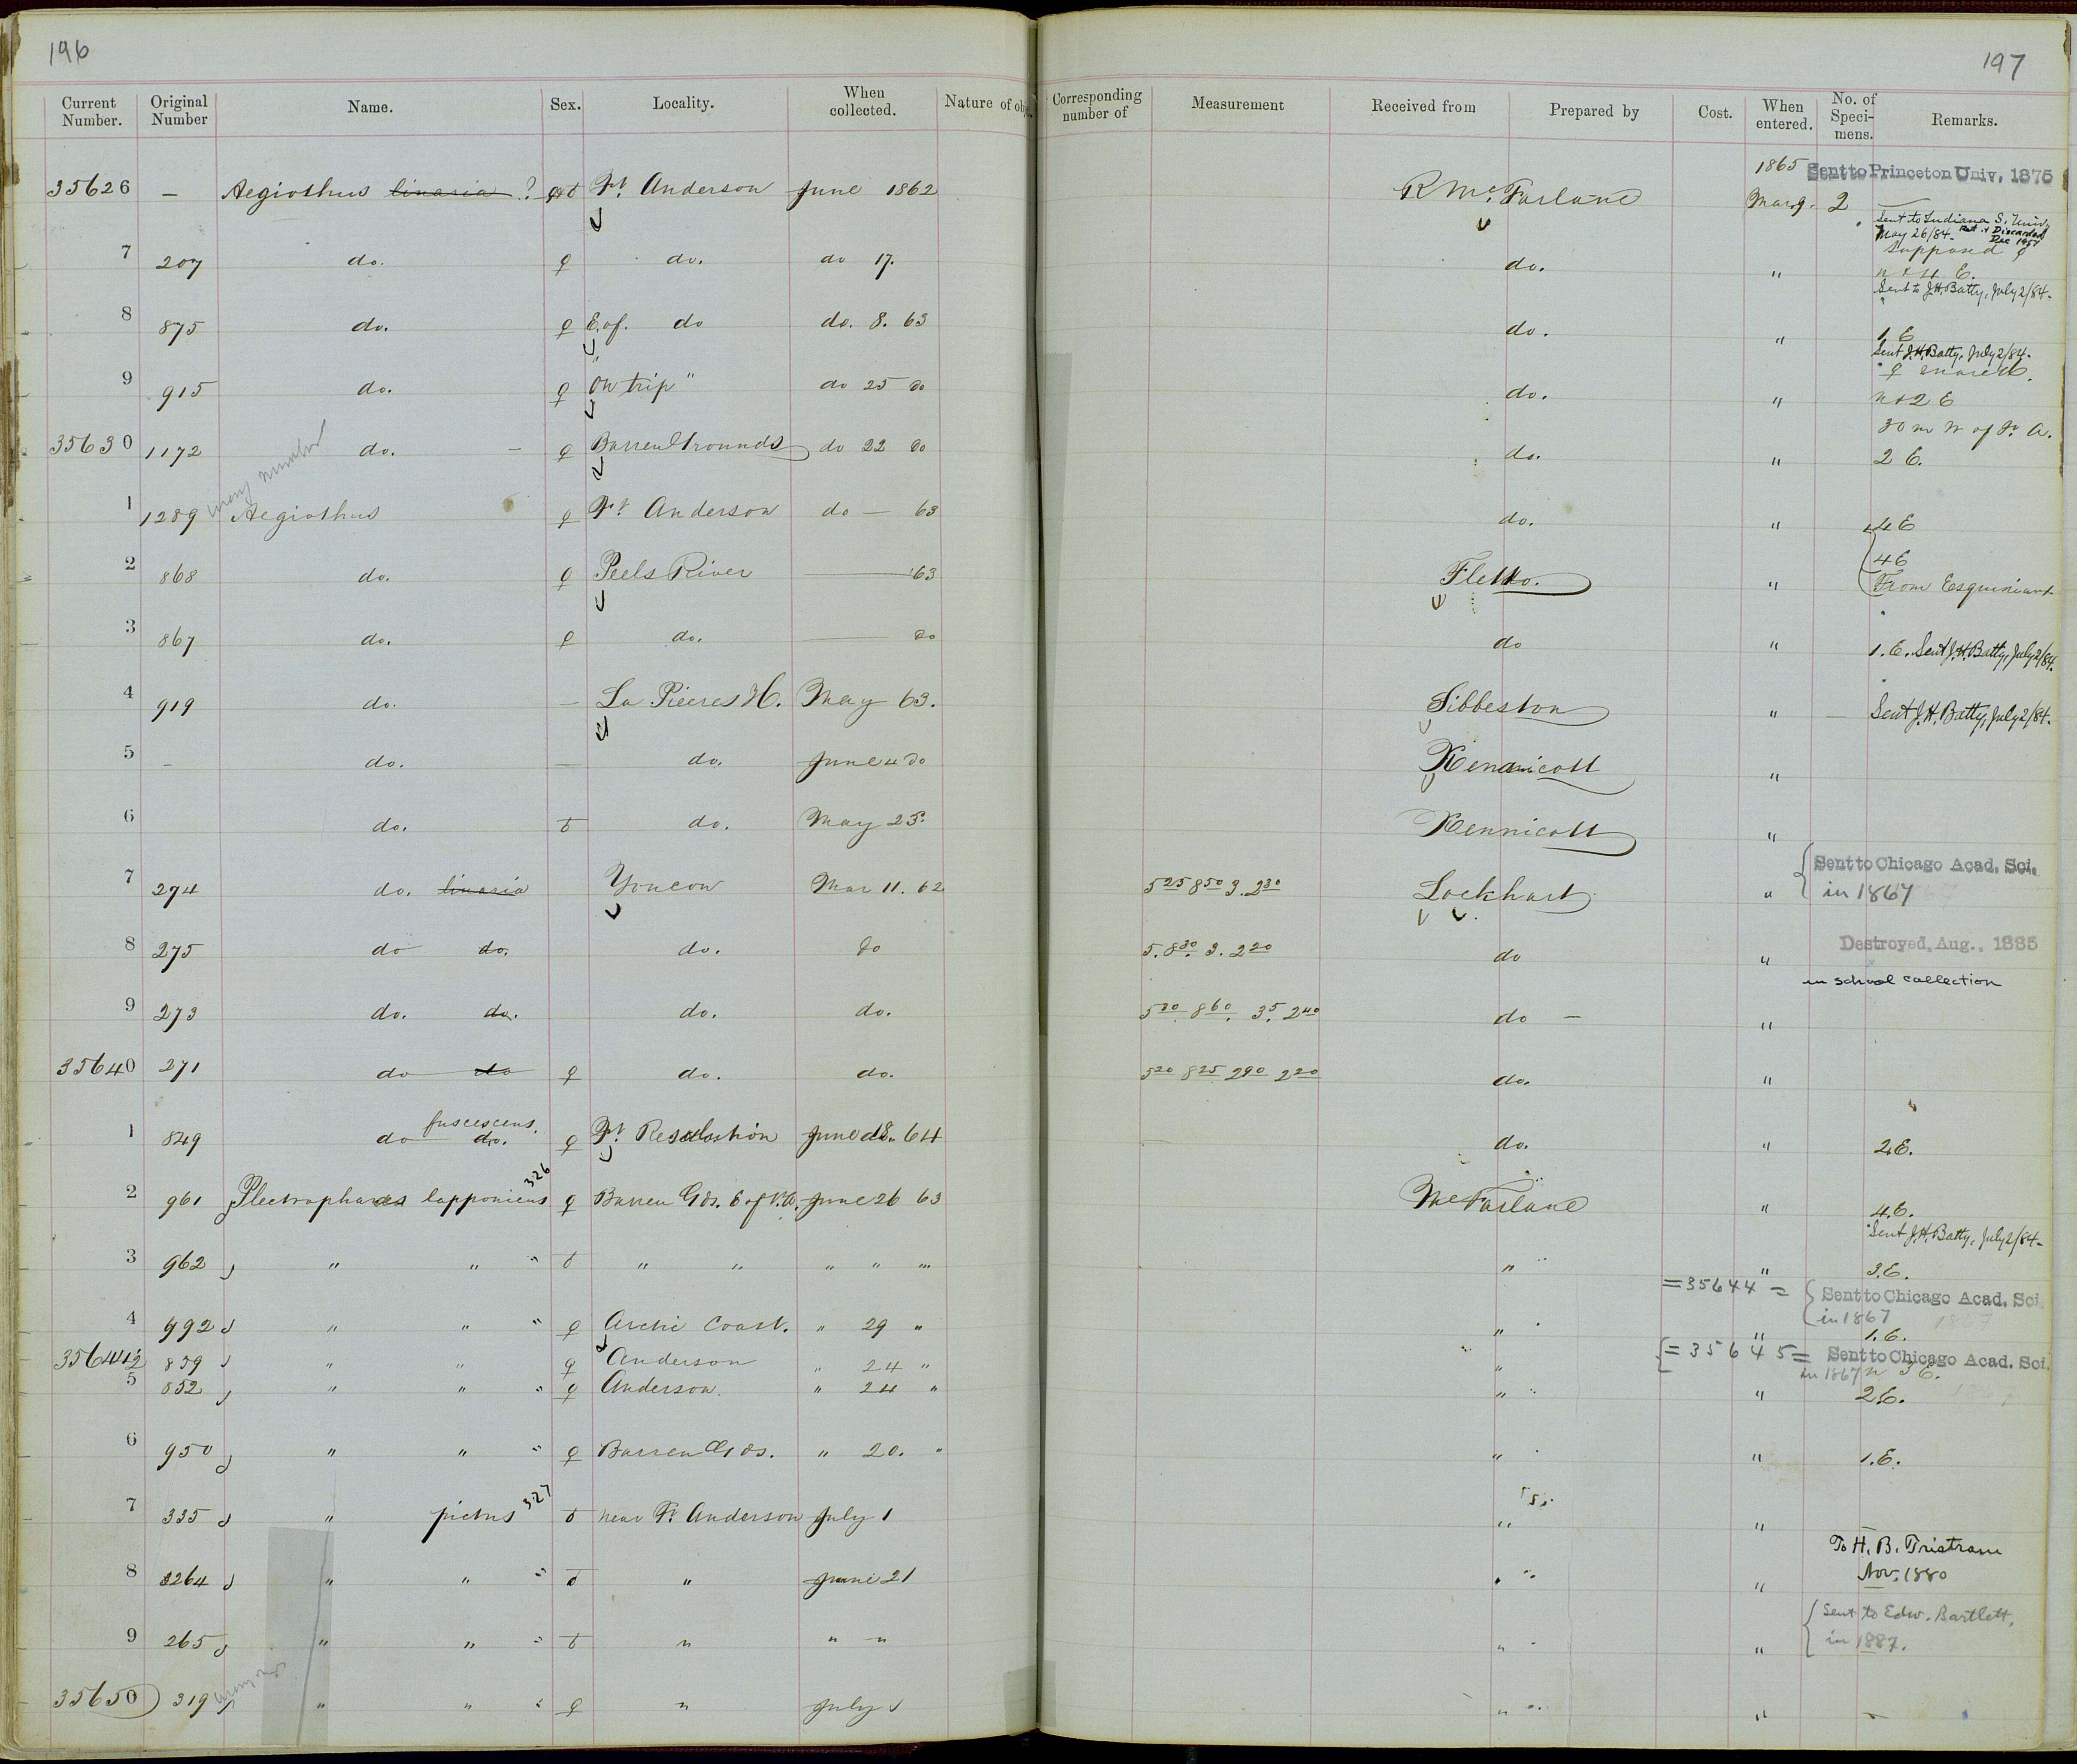 196
Current Number. Original Number Name. Sex. Locality. When collected. Nature of obj
35626 — Aegiothus linaria ? Ft Anderson June 1862
7 207 do. ♀ do. do 17.
8 875 do. ♀ E. of. do do. 8. 63
9 915 do. ♀ "On trip" do 25 do
35630 1172 do. — ♀ Barren Grounds do 22 do
wrong number
1 1289 Aegiothus ♀ Ft Anderson do — 63
2 868 do. ♀ Peels River — '63
3 867 do. ♀ do. — do
4 919 do. — La Pieres H. May 63.
5 — do. — do. June 4 do
6 do. ♂ do. May 23.
7 274 do. linaria Youcon Mar 11. 62
8 275 do do. do. do
9 273 do. do. do. do.
35640 271 do do ♀ do. do.
fuscescens.
1 849 do do. ♀ Ft. Resolution June 64
2 961 Plectrophanes lapponicus 326 ♀ Barren Gds. E of F.A. June 26 63
3 962 " " " ♂ " " " " "
4 992 " " " ♀ Arctic Coast. " 29 "
35644½ 859 " " ♀ Anderson " 24 "
5 852 " " " ♀ Anderson. " 24 "
6 950 " " " ♀ Barren Gds. " 20. "
7 335 " pictus 327 ♂ near Ft. Anderson July 1
8 3264 " " " ♂ " June 21
9 265 " " " ♂ " " "
35650 319 " " " ♀ " July 1
197
Corresponding number of Measurement Received from Prepared by Cost. When entered. No. of Specimens. Remarks.
1865 Sent to Princeton Univ. 1875
R McFarlane Mar 9. 2 —
Sent to Indiana S. Univ
May 26/84. Ret. & Discarded
Dec 1957
Supposed ♀
do. " n & 4 E.
Sent to J.H. Batty, July 2/84.
do. " 1 E
Sent J.H. Batty, July 2/84.
♀ snared.
do. " n & 2 E
30 m W of Ft. A.
do. " 2 E.
do. " 4 E
4 E
Flett " From Esquimaux
do " 1. E. Sent J.H. Batty, July 2/84.
Sibbeston " — Sent J.H. Batty, July 2/84.
Kennicott "
Kennicott "
Sent to Chicago Acad. Sci.
5 25 8 50 3. 2 30 Lockhart " in 1867
Destroyed, Aug., 1885
5. 8 30. 3. 2 20 do "
in school collection
do — "
5 20 8 25 2 90 2 20 do. "
do. " 2 E.
McFarlane " 4. E.
Sent J.H. Batty, July 2/84.
" " 3. E.
=35644= Sent to Chicago Acad. Sci.
in 1867
" " 1. E.
=35645= Sent to Chicago Acad. Sci.
in 1867 n 3 E.
" " 2 E.
" " 1. E.
" "
To H. B. Tristram
Nov. 1880
" "
Sent to Edw. Bartlett,
in 1887.
" "
" "